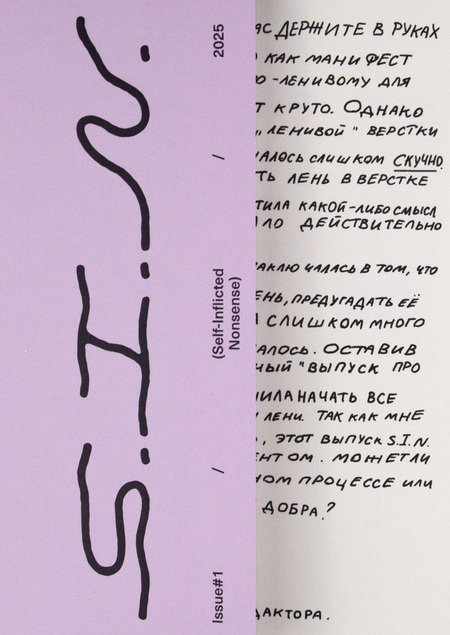 S.I.N.
Issue#1 / (Self-Inflicted / 2025
Nonsense)
АС ДЕРЖИТЕ В РУКАХ
КАК МАНИФЕСТ
О-ЛЕНИВОМУ ДЛЯ
Т КРУТО. ОДНАКО
„ЛЕНИВОЙ" ВЕРСТКИ
АЛОСЬ СЛИШКОМ СКУЧНО.
ТЬ ЛЕНЬ В ВЕРСТКЕ
ТИЛА КАКОЙ-ЛИБО СМЫСЛ
ЛО ДЕЙСТВИТЕЛЬНО
АКЛЮЧАЛАСЬ В ТОМ, ЧТО
ЕНЬ, ПРЕДУГАДАТЬ ЕЁ
СЛИШКОМ МНОГО
АЛОСЬ. ОСТАВИВ
НЫЙ "ВЫПУСК ПРО
ИЛА НАЧАТЬ ВСЕ
ЛЕНИ. ТАК КАК МНЕ
, ЭТОТ ВЫПУСК S.I.N.
ЕНТОМ. МОЖЕТ ЛИ
НОМ ПРОЦЕССЕ ИЛИ
ДОБРА?
ДАКТОРА.